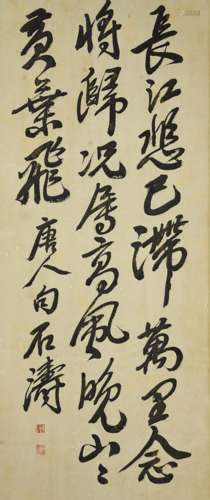 長江悲已滯萬里念
將歸況屬高風晚山〻
黃葉飛 唐人句 石濤